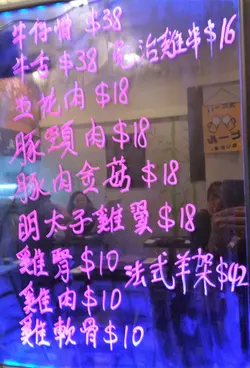 牛仔骨$38
牛舌$38
免治雞串$16
豚肉$18
豚頸肉$18
豚肉金菇$18
明太子雞翼$18
雞腎$10
法式羊架$42
雞肉$10
雞軟骨$10